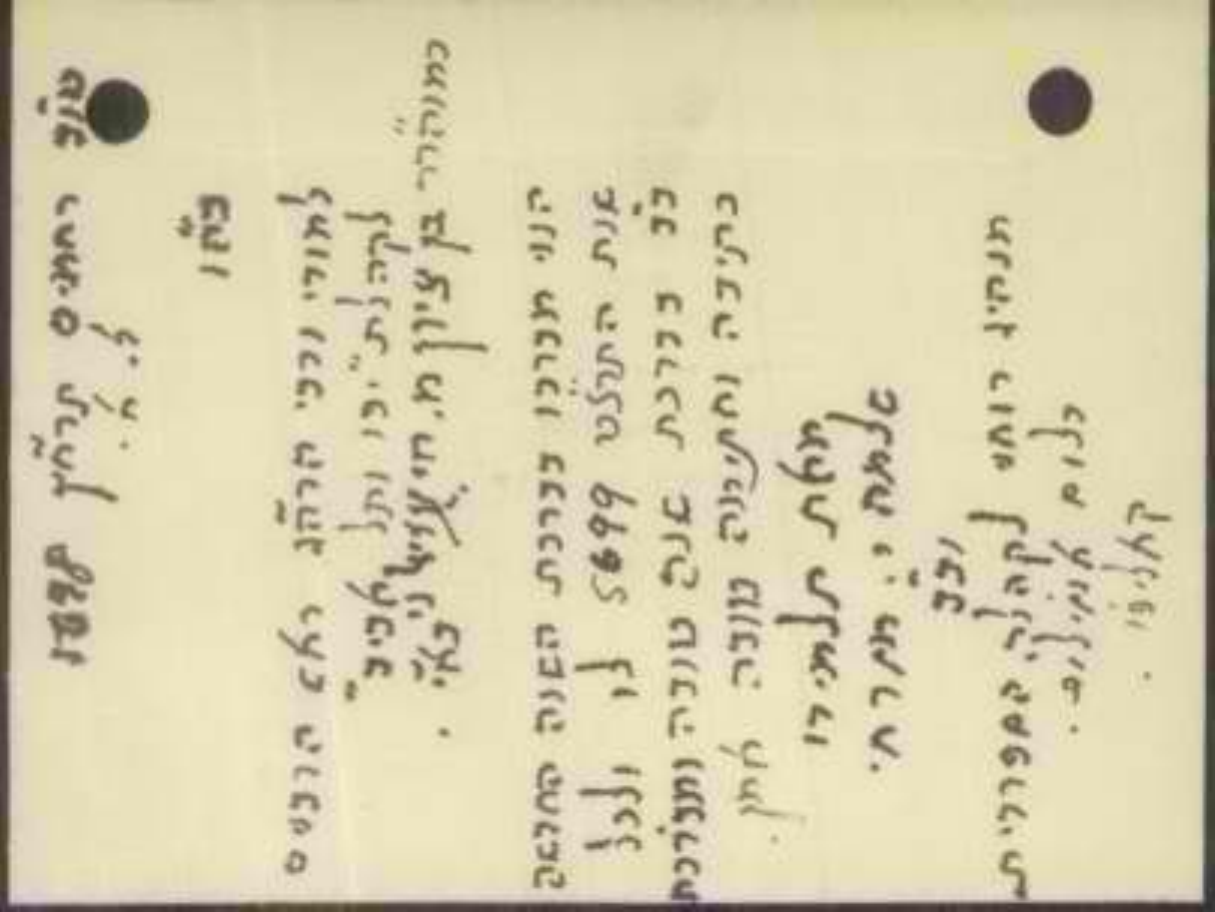 רחמים תרח"ץ 1938
למורי ורבי הרה"ג ראש הרבנים
לקהלת יפו ותל אביב
כמוהר"ר בן ציון מ. חי עוזיאל ני בא"י.
הנני מברכו בברכת השנה החדשה
שנת התרצ"ט 5699 לו ולכל
ב"ב בברכת שנה טובה ומבורכת
כתיבה וחתימה טובה אמן.
מאת תלמידו
שלמה י. מזרחי.
וב"ב
מנהיג רוחני הספרדית
בלוס אנג'לוס.
קאליפו.